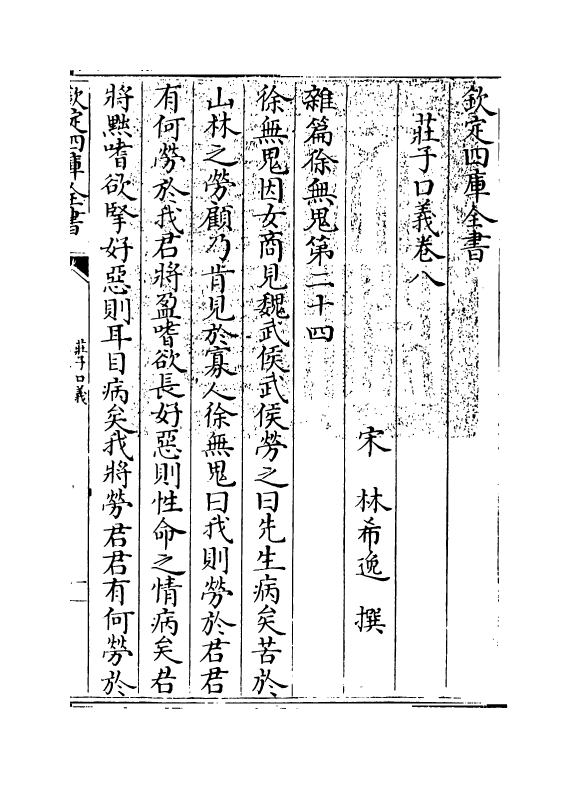 欽定四庫全書
莊子口義卷八
宋 林希逸 撰
雜篇徐無鬼第二十四
徐無鬼因女商見魏武侯武侯勞之曰先生病矣苦於
山林之勞顧乃肯見於寡人徐無鬼曰我則勞於君君
有何勞於我君將盈嗜欲長好惡則性命之情病矣君
將黜嗜欲掔好惡則耳目病矣我將勞君君有何勞於
欽定四庫全書
莊子口義
一